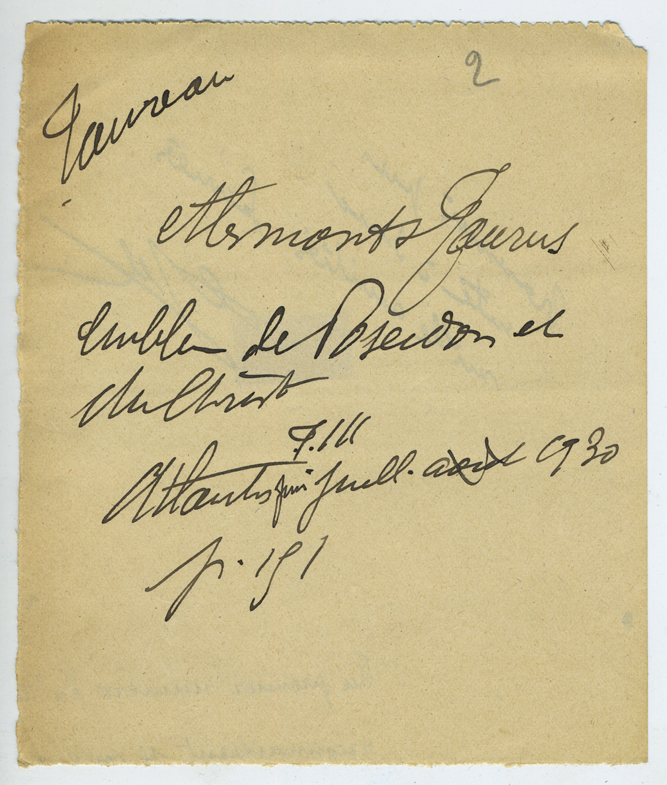 2
Taureau
Les monts Taurus
Emblem de Poseidon et
du Christ
F. III
Atlantis juin juill. août 1930
p. 151